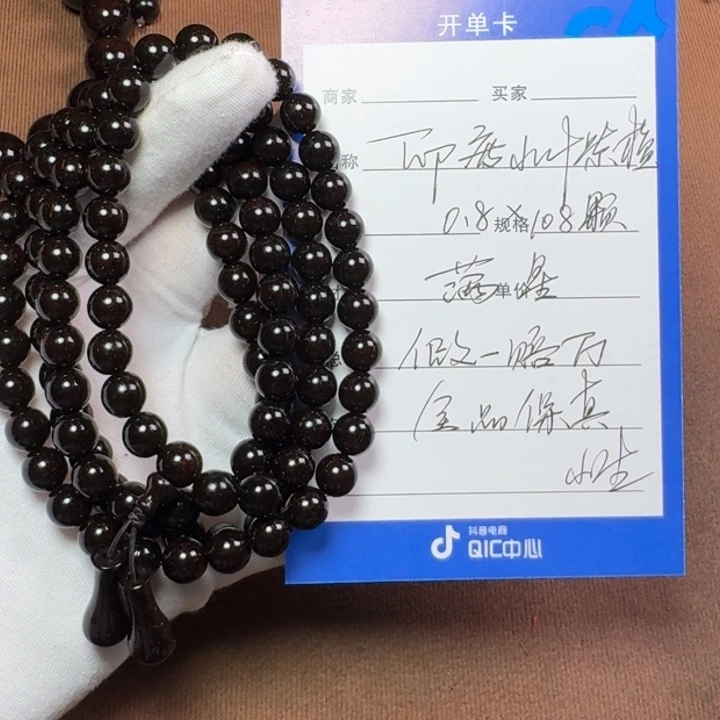 开单卡
商家 买家
称 印度小叶紫檀
0.8×108颗 规格
满星 单价
假一赔万
全品保真
抖音电商
QIC中心